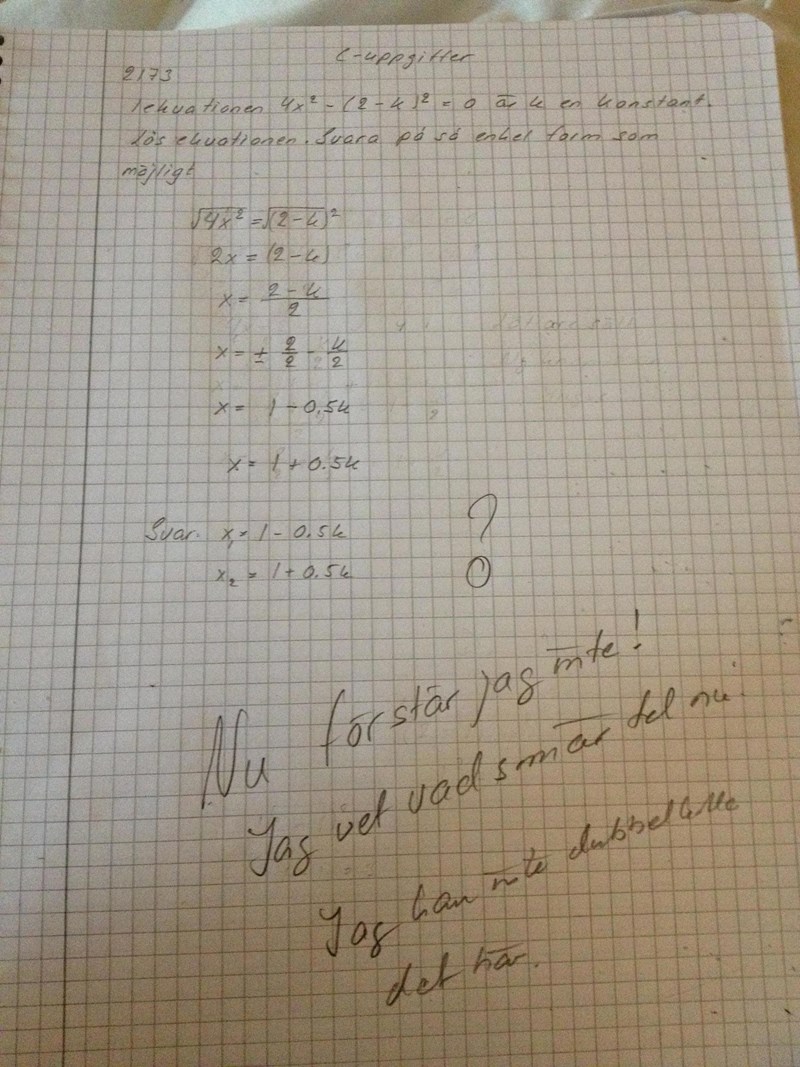 C-uppgifter
2173
I ekvationen 4x² - (2 - k)² = 0 är k en konstant.
Lös ekvationen. Svara på så enkel form som
möjligt
√4x² = √(2 - k)²
2x = (2 - k)
x = 2 - k / 2
x = ± 2/2 - k/2
x = 1 - 0,5k
x = 1 + 0.5k
Svar. x₁ = 1 - 0,5k ?
x₂ = 1 + 0.5k
Nu förstår jag inte!
Jag vet vad som är fel nu
Jag kan inte
det här.